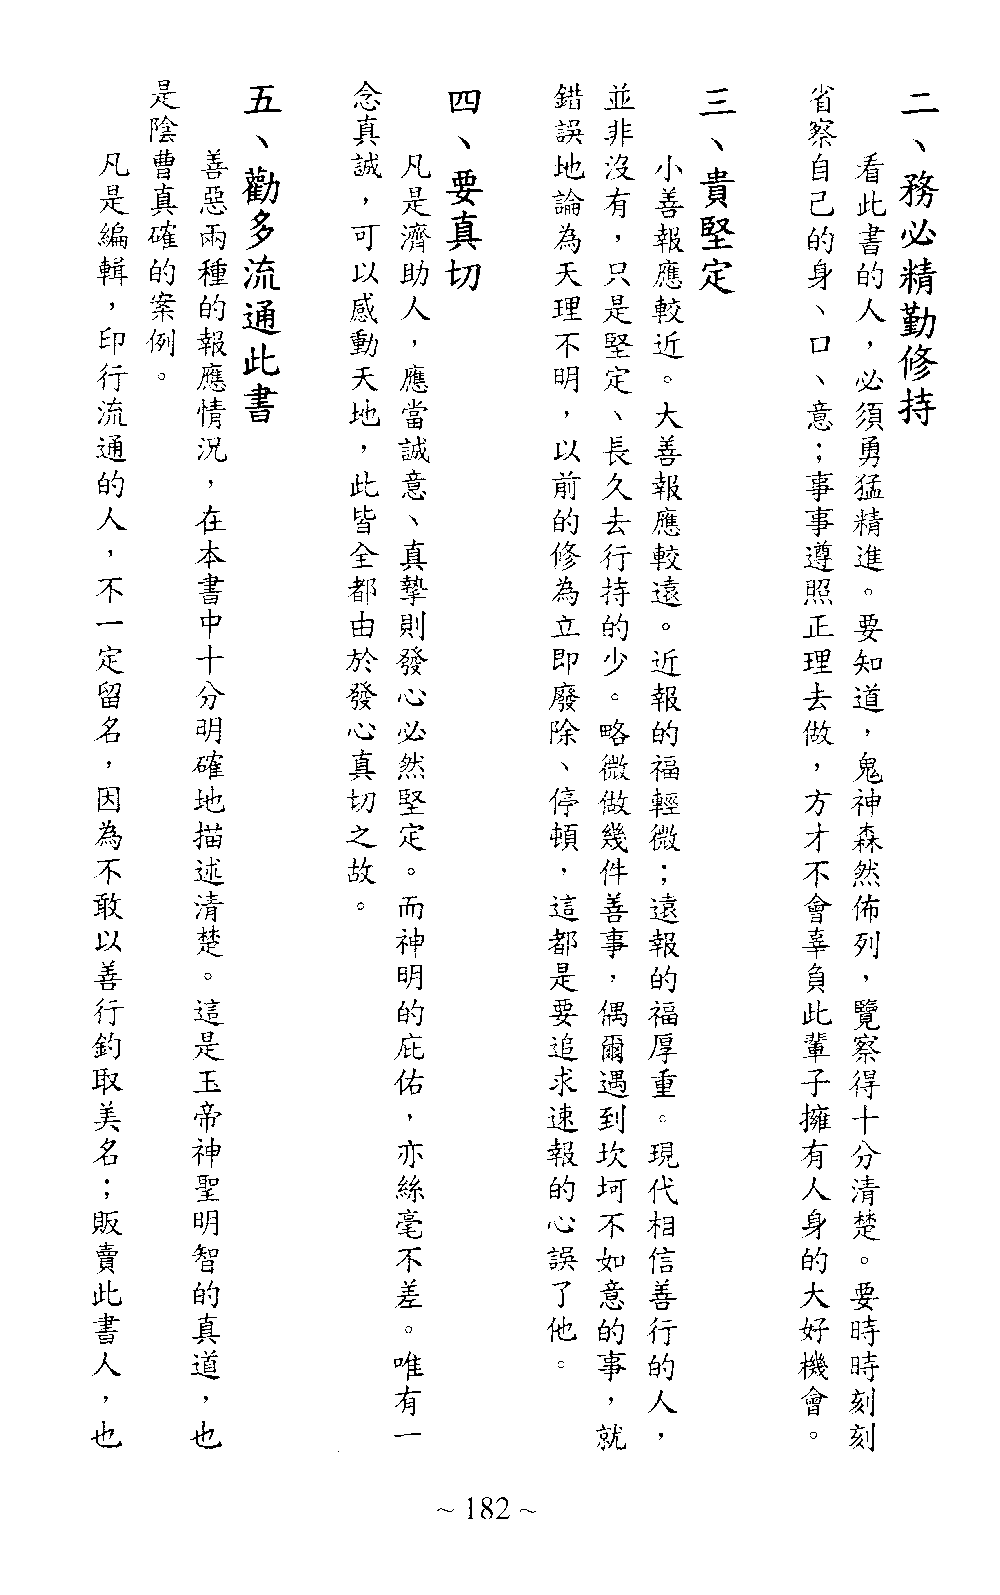 二、務必精勤修持
看此書的人，必須勇猛精進。要知道，鬼神森然佈列，覽察得十分清楚。要時時刻刻
省察自己的身、口、意；事事遵照正理去做，方才不會辜負此輩子擁有人身的大好機會。
三、貴堅定
小善報應較近。大善報應較遠。近報的福輕微；遠報的福厚重。現代相信善行的人，
並非沒有，只是堅定、長久去行持的少。略微做幾件善事，偶爾遇到坎坷不如意的事，就
錯誤地論為天理不明，以前的修為立即廢除、停頓，這都是要追求速報的心誤了他。
四、要真切
凡是濟助人，應當誠意、真摯則發心必然堅定。而神明的庇佑，亦絲毫不差。唯有一
念真誠，可以感動天地，此皆全都由於發心真切之故。
五、勸多流通此書
善惡兩種的報應情況，在本書中十分明確地描述清楚。這是玉帝神聖明智的真道，也
是陰曹真確的案例。
凡是編輯，印行流通的人，不一定留名，因為不敢以善行釣取美名；販賣此書人，也
~ 182 ~